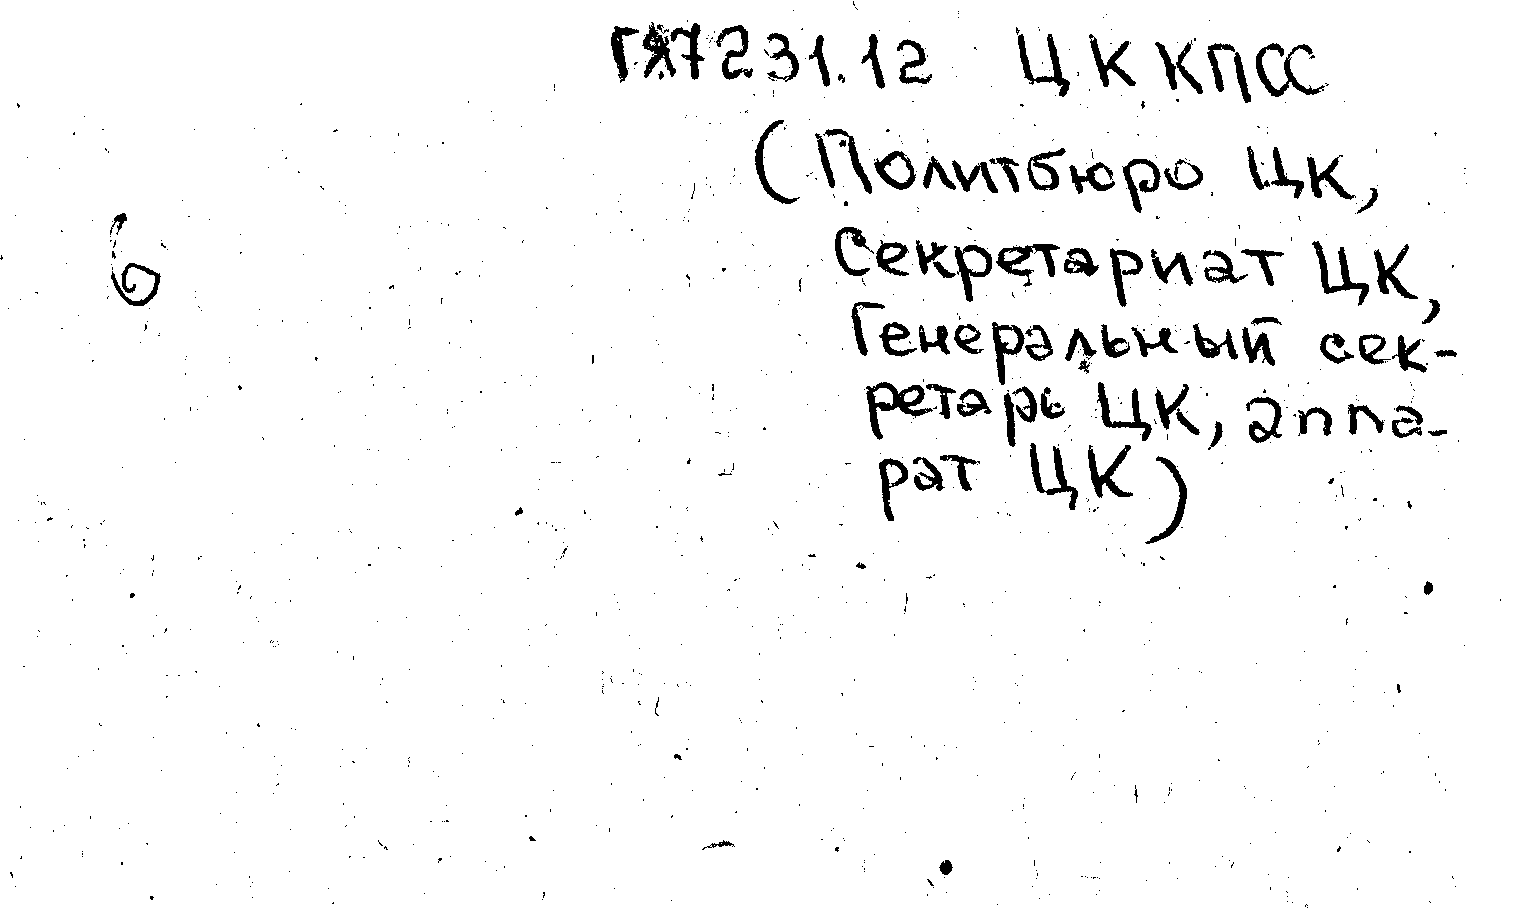 Г87231.12 ЦК КПСС
(Политбюро ЦК,
Секретариат ЦК,
6
Генеральный сек-
ретарь ЦК, аппа-
рат ЦК)